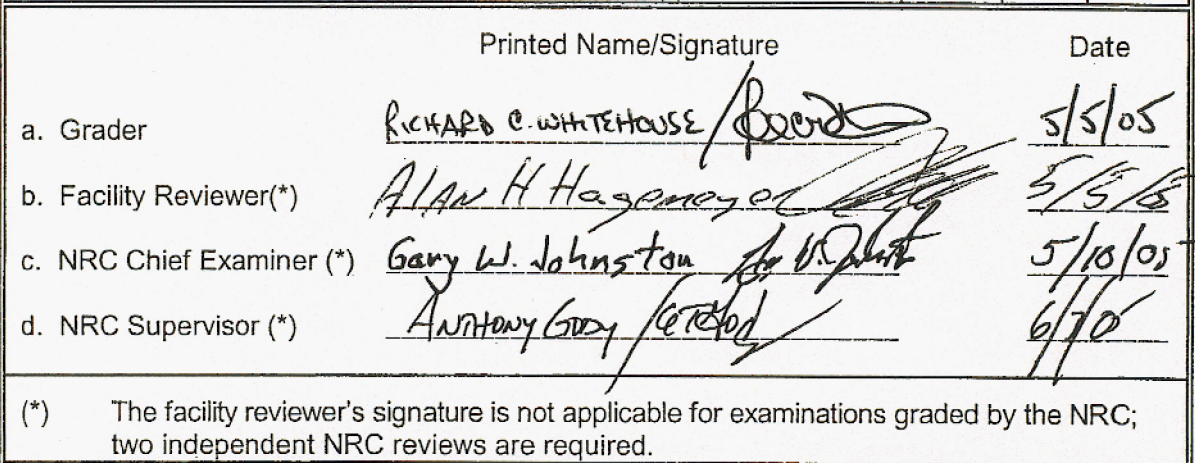 Printed Name/Signature Date
a. Grader RICHARD C. WHITEHOUSE / 5/5/05
b. Facility Reviewer(*) Alan H Hagemeyer 5/5/05
c. NRC Chief Examiner (*) Gary W. Johnston 5/10/05
d. NRC Supervisor (*) ANTHONY GODY /
(*) The facility reviewer's signature is not applicable for examinations graded by the NRC;
two independent NRC reviews are required.